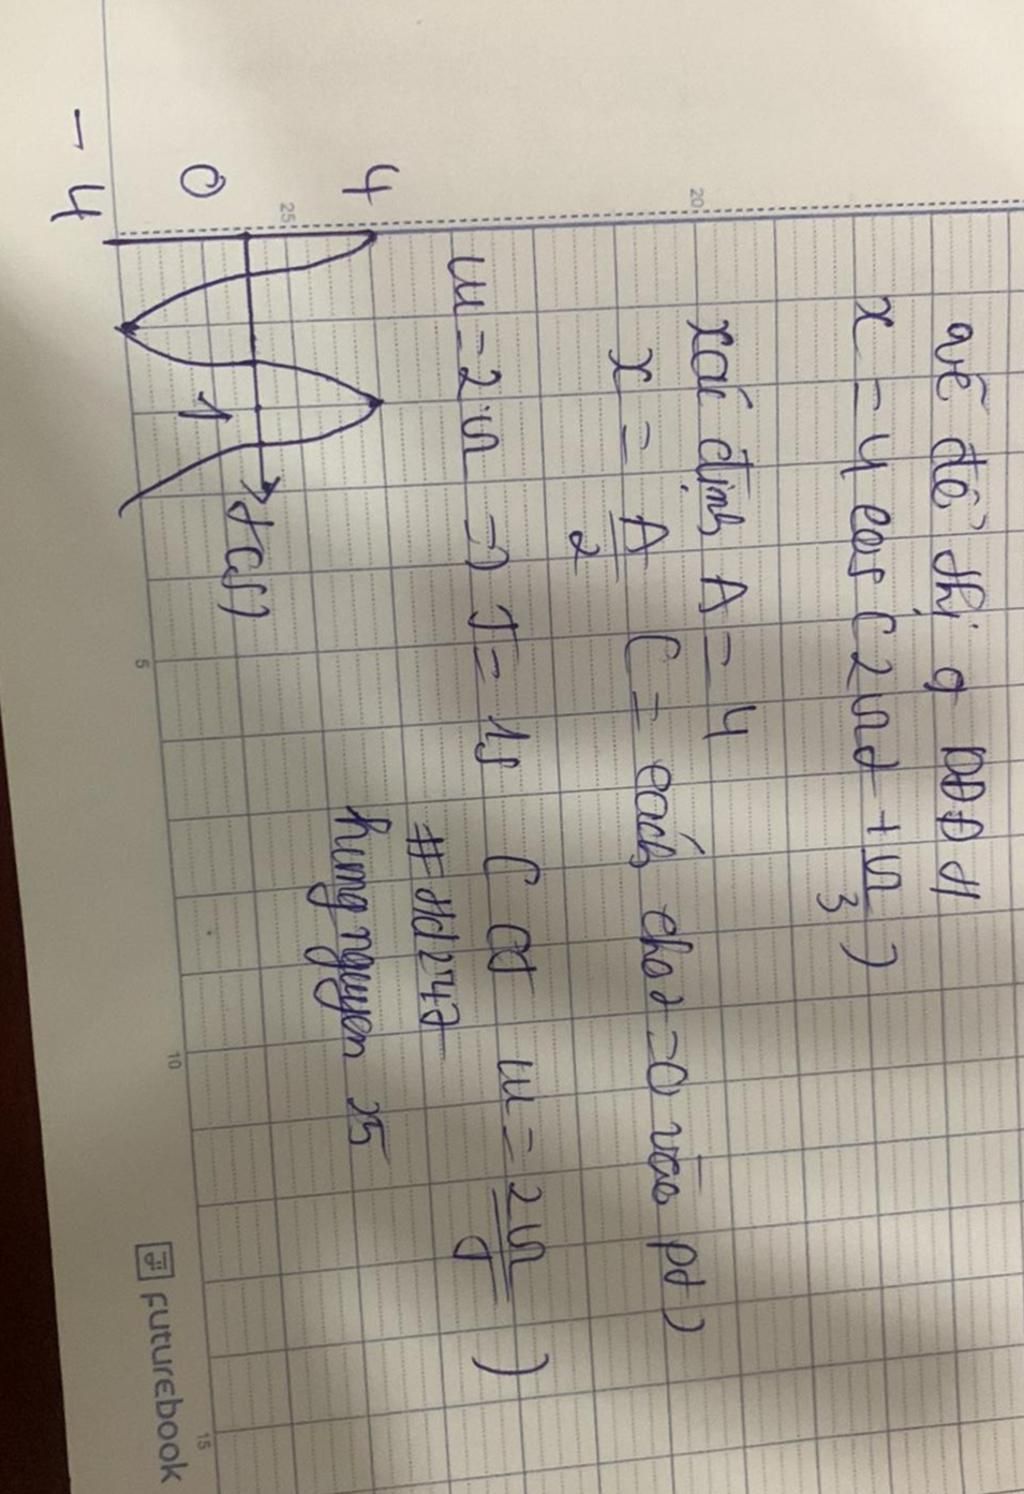 vẽ đồ thị g DĐĐH
x = 4 cos (2πt + π/3)
xác định A = 4
x = A/2 (= cách cho t = 0 vào pt)
ω = 2π → T = 1s (từ ω = 2π/T)
#Hd247
hưng nguyen 25
4
0
-4
1
t(s)
20
25
5
10
15
FUTUREBOOK